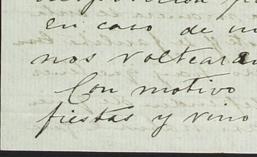 en caso de
nos voltear
Con motivo
fiestas y vino